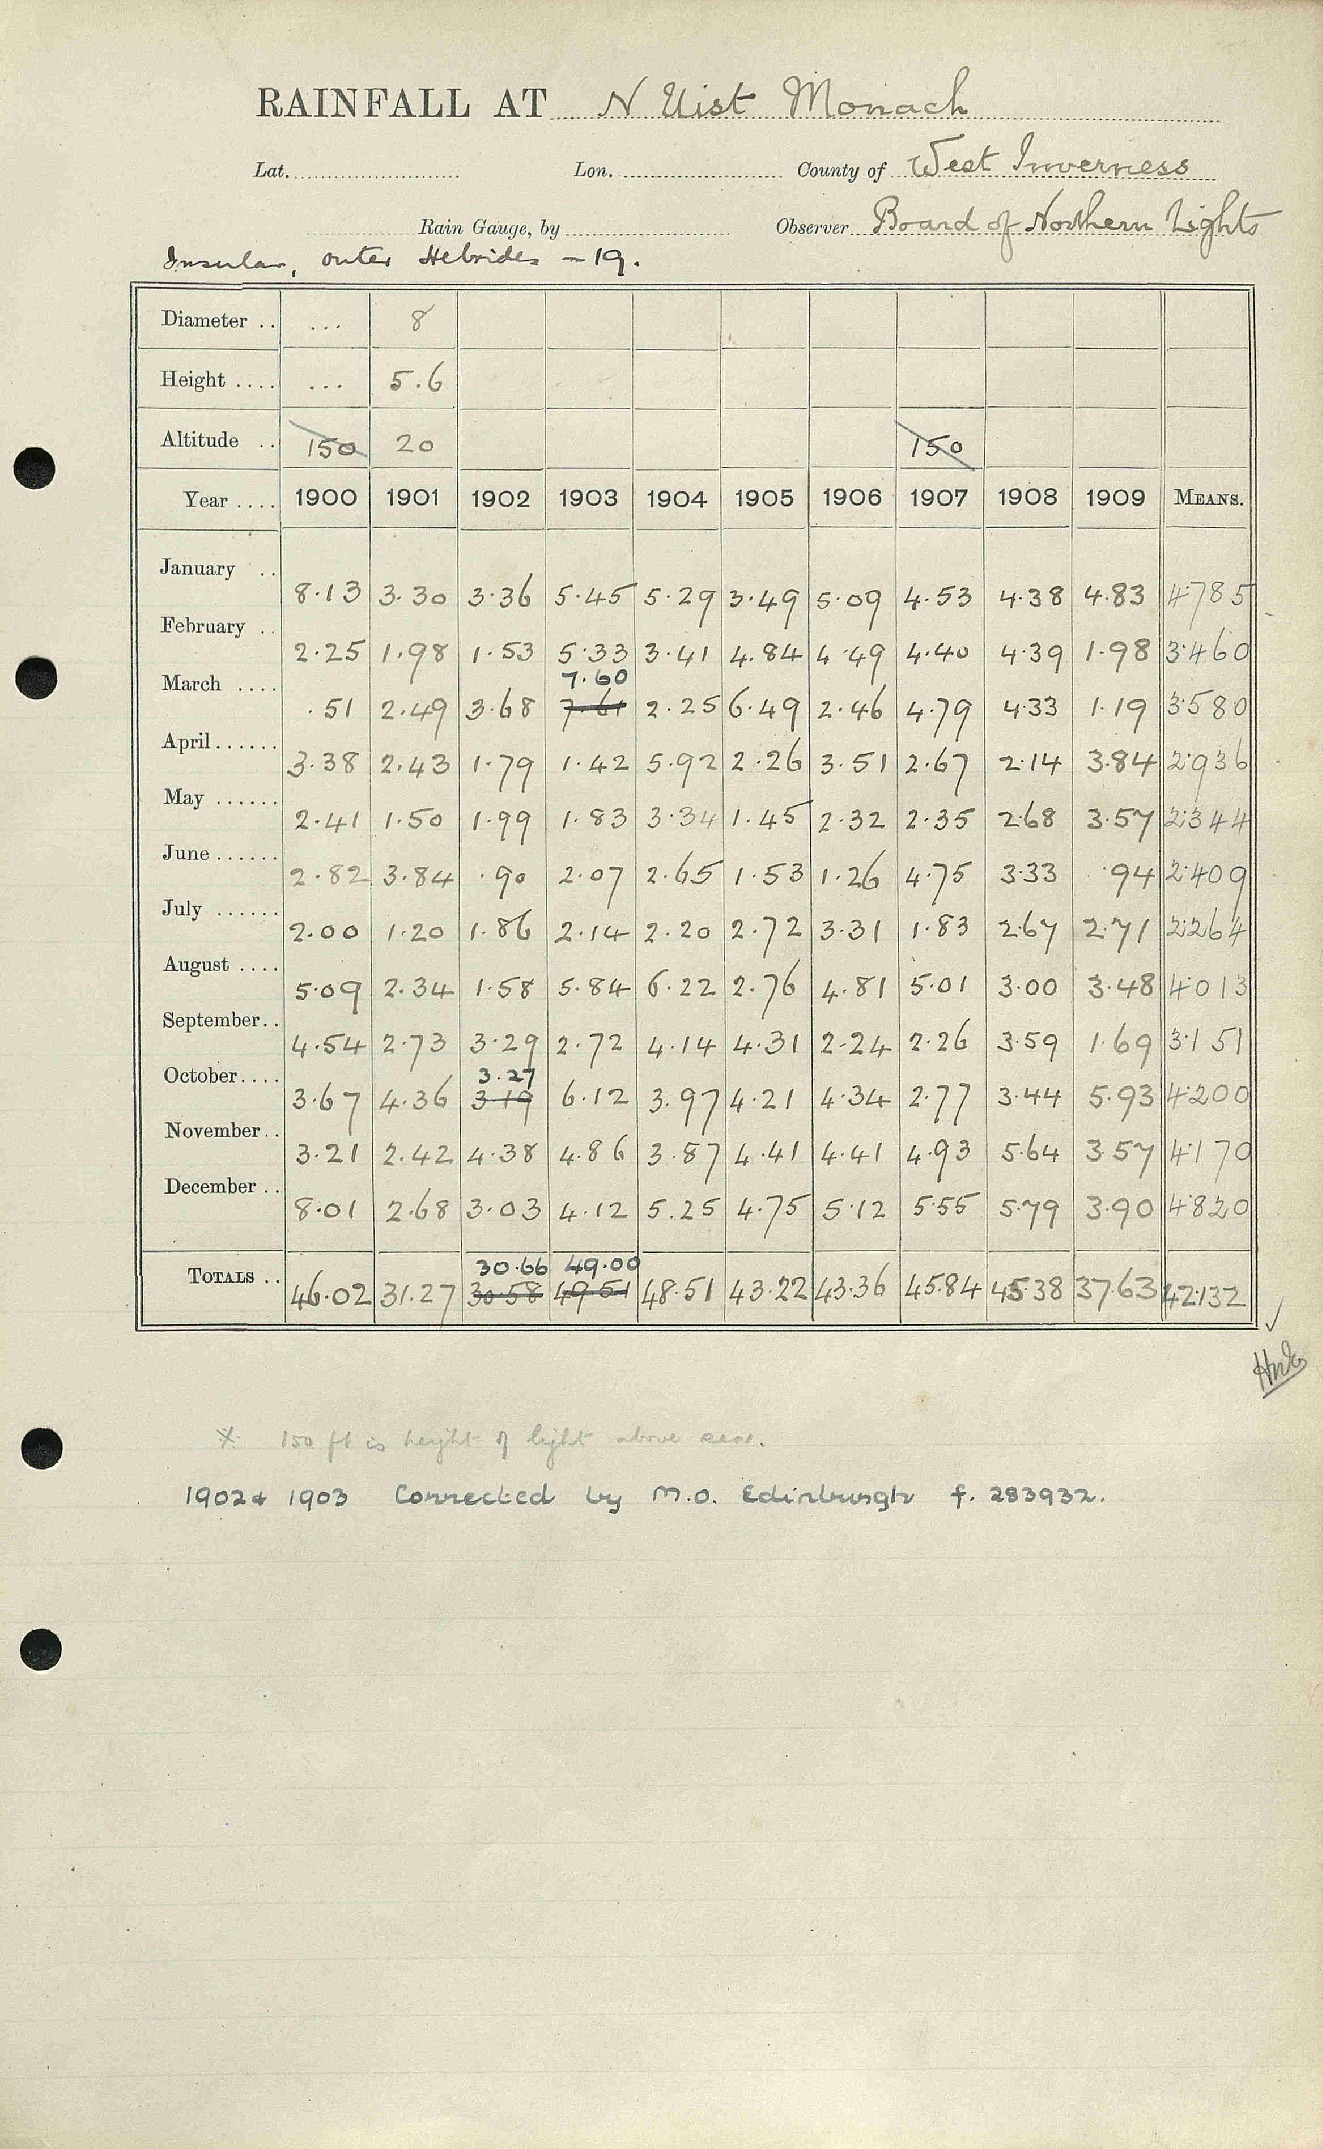 RAINFALL AT N Uist Monach
Lat. Lon. County of West Inverness
Rain Gauge, by Observer Board of Northern Lights
Insular, outer Hebrides - 19.
Diameter .. ... 8
Height .... ... 5.6
Altitude .. 150 20 150
Year .... 1900 1901 1902 1903 1904 1905 1906 1907 1908 1909 MEANS.
January .. 8.13 3.30 3.36 5.45 5.29 3.49 5.09 4.53 4.38 4.83 4.785
February .. 2.25 1.98 1.53 5.33 3.41 4.84 4.49 4.40 4.39 1.98 3.460
7.60
March .... .51 2.49 3.68 7.61 2.25 6.49 2.46 4.79 4.33 1.19 3.580
April ...... 3.38 2.43 1.79 1.42 5.92 2.26 3.51 2.67 2.14 3.84 2.936
May ...... 2.41 1.50 1.99 1.83 3.34 1.45 2.32 2.35 2.68 3.57 2.344
June ...... 2.82 3.84 .90 2.07 2.65 1.53 1.26 4.75 3.33 .94 2.409
July ...... 2.00 1.20 1.86 2.14 2.20 2.72 3.31 1.83 2.67 2.71 2.264
August .... 5.09 2.34 1.58 5.84 6.22 2.76 4.81 5.01 3.00 3.48 4.013
September .. 4.54 2.73 3.29 2.72 4.14 4.31 2.24 2.26 3.59 1.69 3.151
3.27
October .... 3.67 4.36 3.19 6.12 3.97 4.21 4.34 2.77 3.44 5.93 4.200
November .. 3.21 2.42 4.38 4.86 3.87 4.41 4.41 4.93 5.64 3.57 4.170
December .. 8.01 2.68 3.03 4.12 5.25 4.75 5.12 5.55 5.79 3.90 4.820
30.66 49.00
TOTALS .. 46.02 31.27 30.58 49.51 48.51 43.22 43.36 45.84 45.38 37.63 42.132
* 150 ft is height of light above sea.
1902 & 1903 Corrected by M.O. Edinburgh f. 283932.